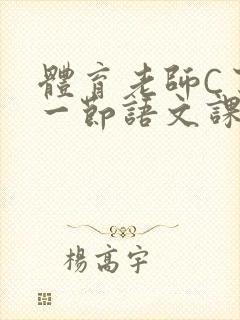 體育老師C
一節語文課
楊高宇